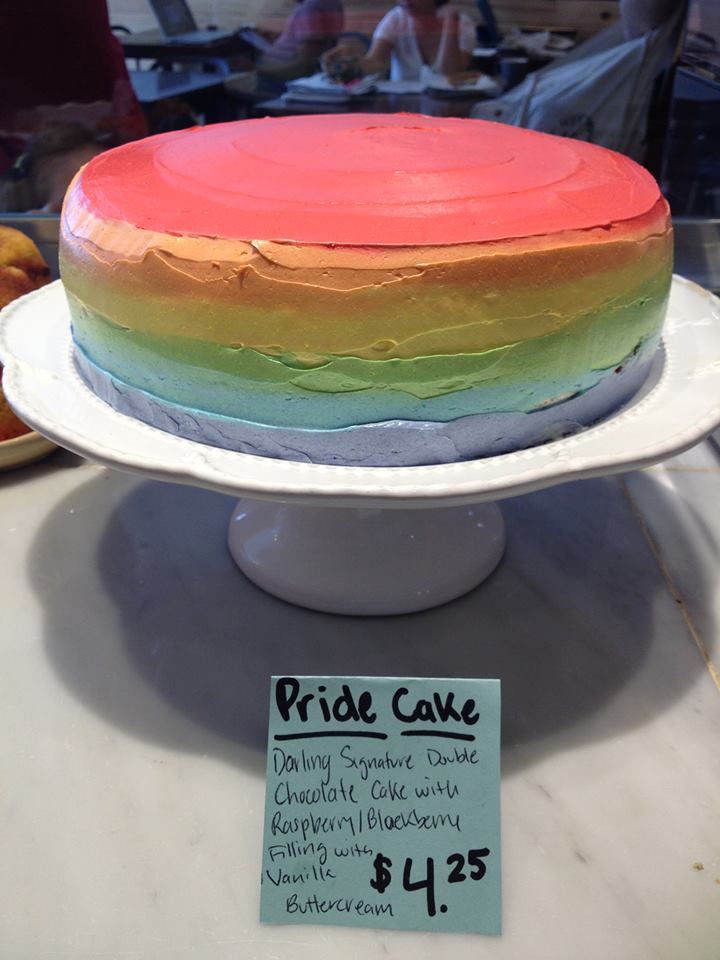 Pride Cake
Darling Signature Double
Chocolate Cake with
Raspberry/Blackberry
Filling with
Vanilla
Buttercream
$4.25